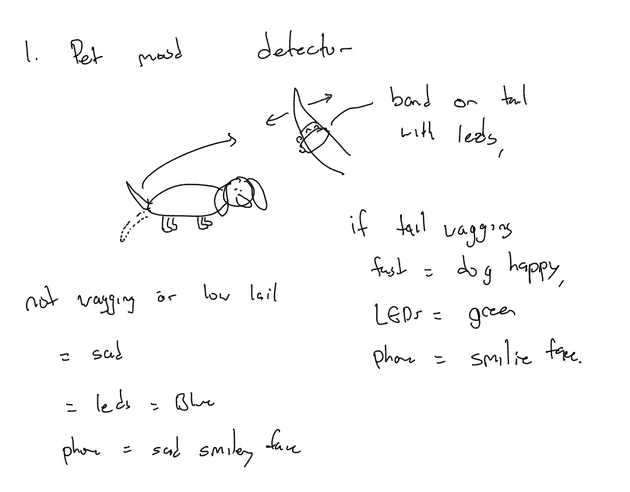 1. Pet mood detector
band on tail
with leds,
if tail wagging
fast = dog happy,
LEDs = green
phone = smilie face.
not wagging or low tail
= sad
= leds = Blue
phone = sad smiley face